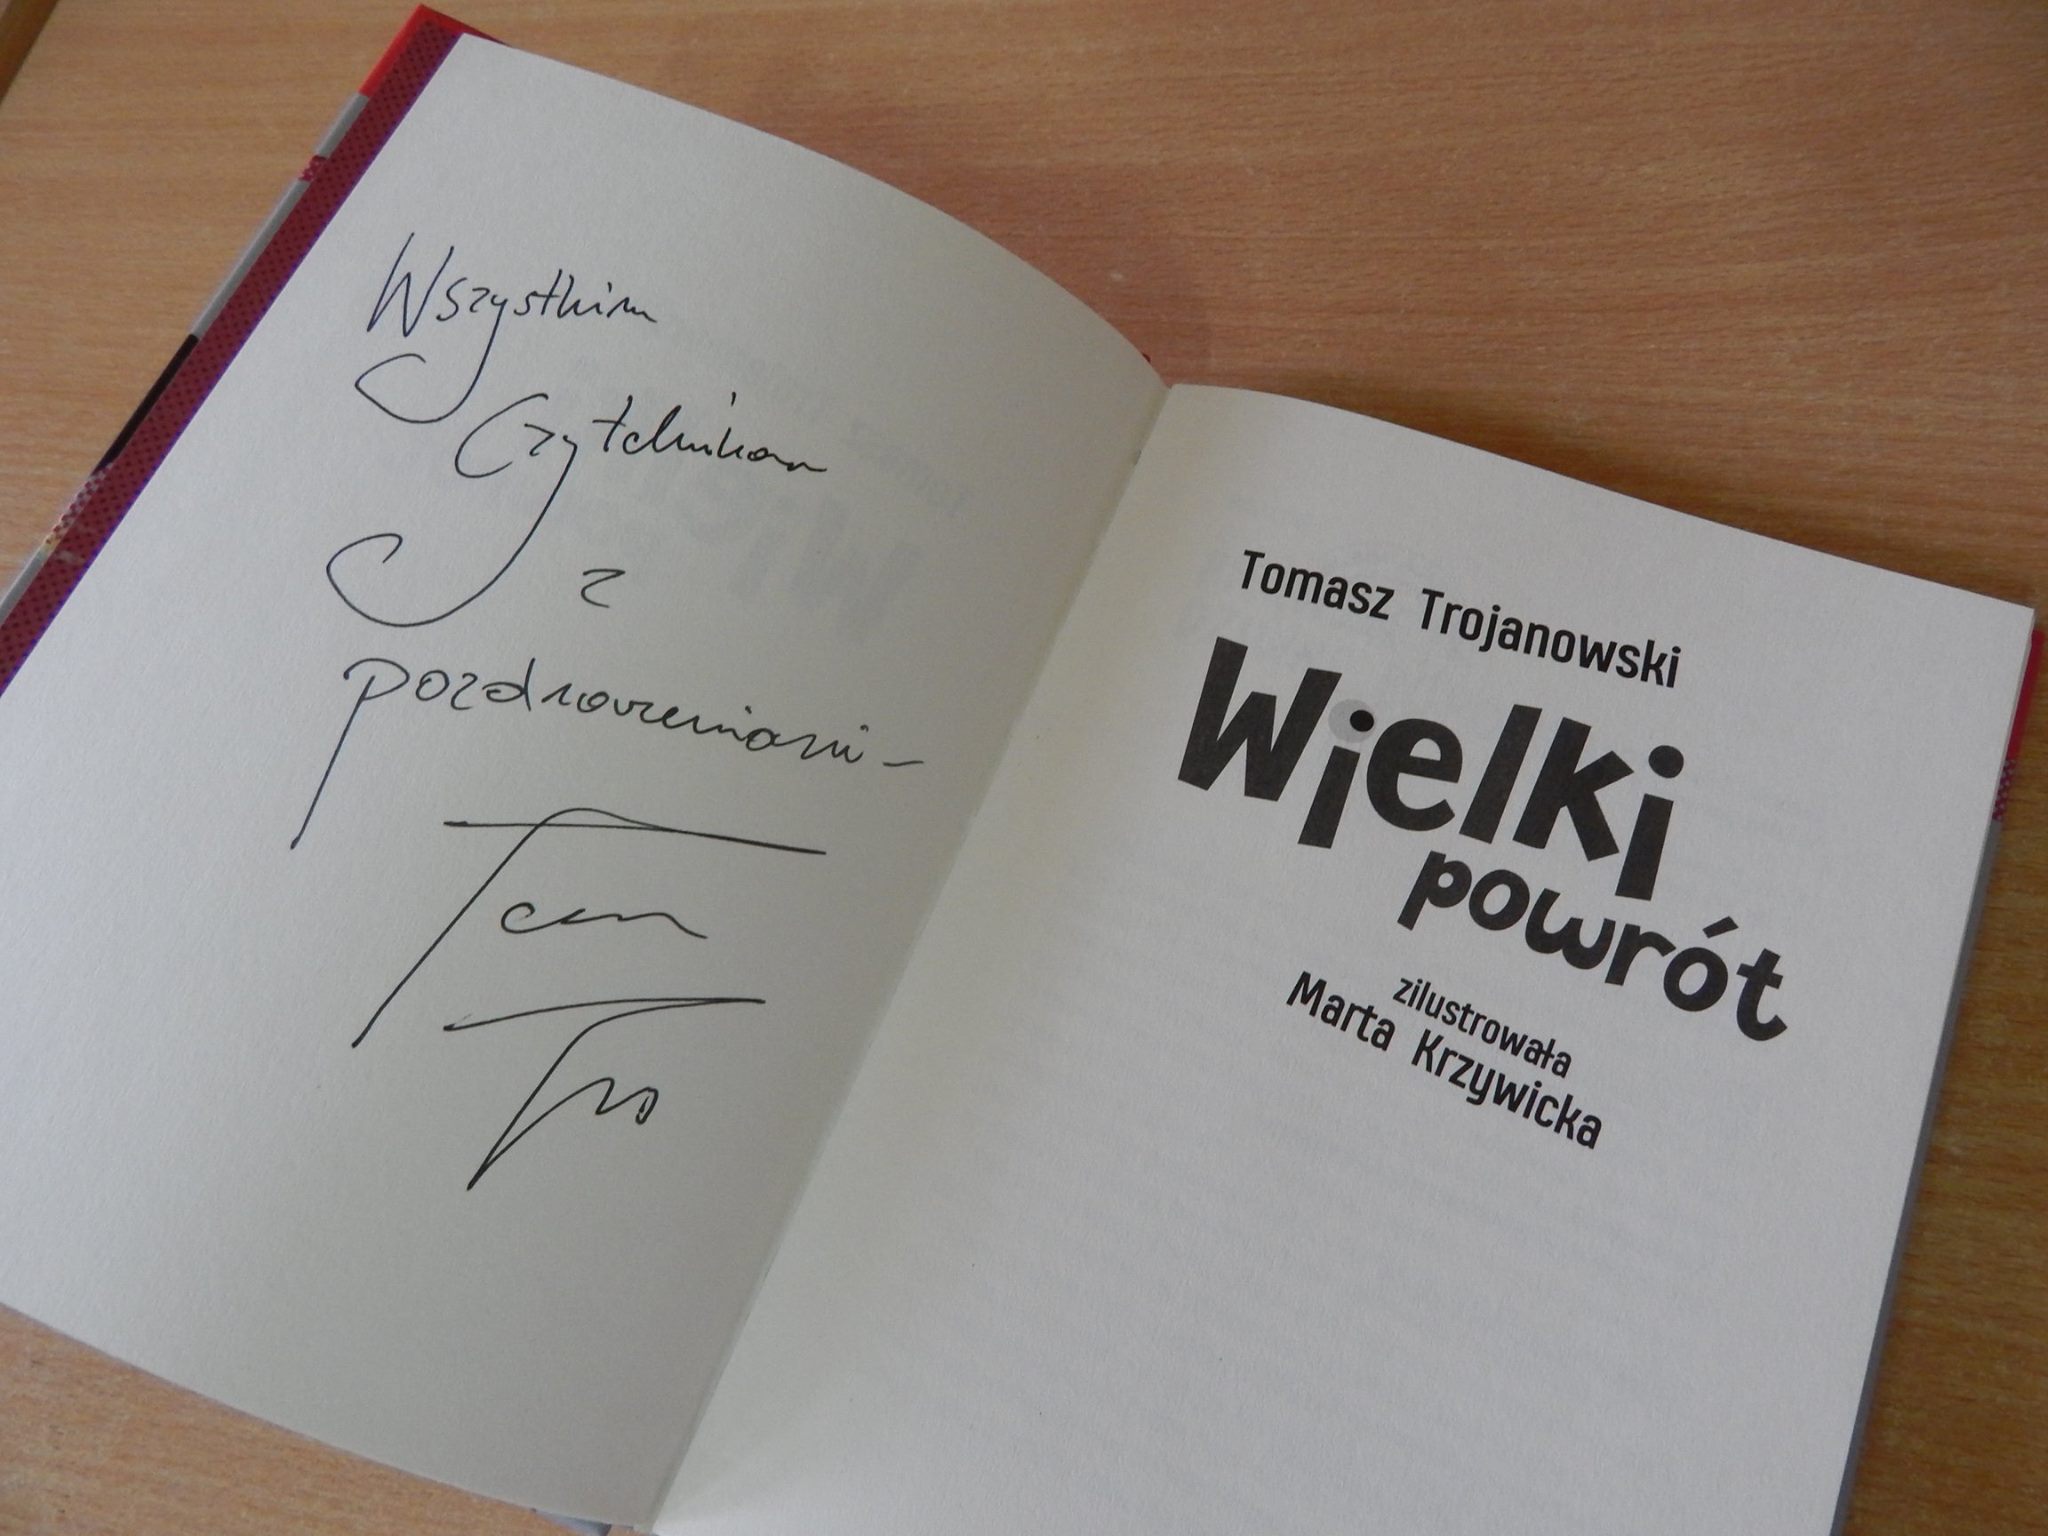 Wszystkim
Czytelnikom
z
pozdrowieniami -
Tom
Tro
Tomasz Trojanowski
Wielki
powrót
zilustrowała
Marta Krzywicka